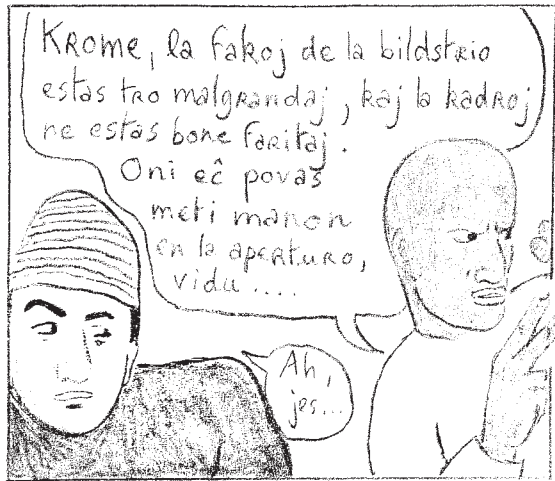 Krome, la fakoj de la bildstrio
estas tro malgrandaj, kaj la kadroj
ne estas bone faritaj.
Oni eĉ povas
meti manon
en la aperturo,
vidu....
Ah,
jes...